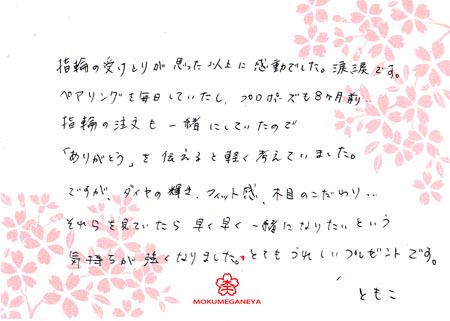 指輪の受けとりが思った以上に感動でした。涙涙です。
ペアリングを毎日していたし、プロポーズも8ヶ月前…
指輪の注文も一緒にしていたので
「ありがとう」を伝えると軽く考えていました。
ですが、ダイヤの輝き、フィット感、木目のこだわり…
それらを見ていたら早く早く一緒になりたいという
気持ちが強くなりました。とてもうれしいプレゼントです。
ともこ
MOKUMEGANEYA